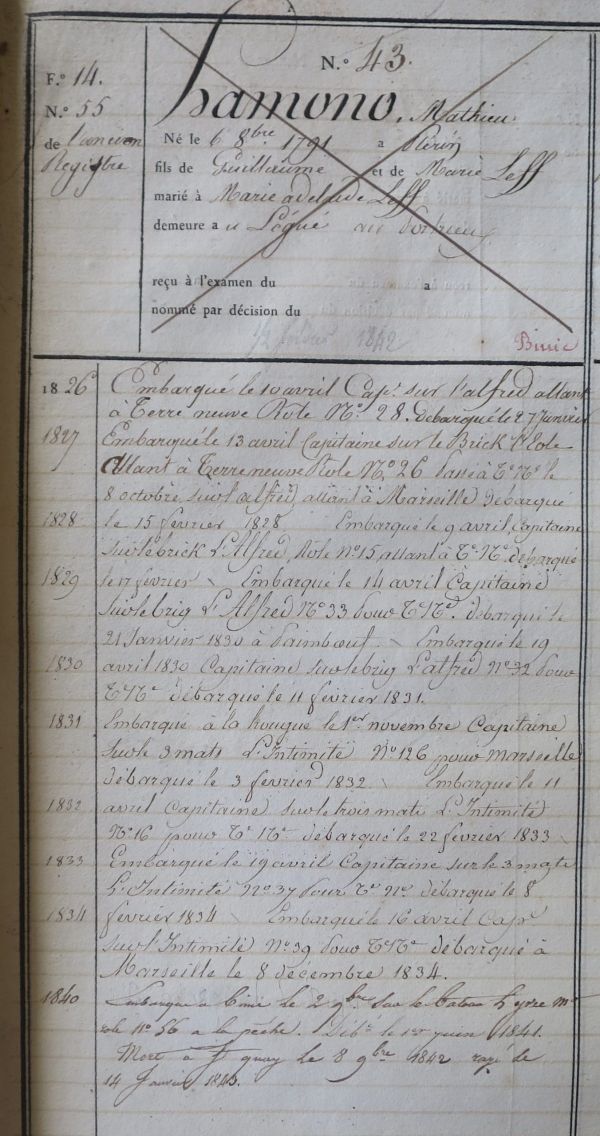 F.º 14.
N.º 55
de l'ancien
Registre
N.º 43.
hamono, Mathieu
Né le 6 8bre 1791 a Plérin
fils de Guillaume et de Marie Leff
marié à Marie adelaide Leff
demeure a u Légué au Portrieux
reçu à l'examen du a
nommé par décision du
1842
Binic
1826 Embarqué le 10 avril Cape. sur l'alfred allant
à Terre neuve Role N.º 28. débarqué le 27 Janvier
1827 Embarqué le 13 avril Capitaine sur le Brick
allant à Terre neuve Role N.º 26 passé à Te. Ne. le
8 octobre sur l'alfred, allant à Marseille débarqué
1828 le 15 février 1828. Embarqué le 9 avril Capitaine
sur le brick L'Alfred, Role Nº 15 allant à Te. Ne. débarqué
1829 le 17 février \ Embarqué le 14 avril Capitaine
sur le brig L'Alfred Nº 33 pour Te Ne. débarqué le
21 Janvier 1830 à Paimboeuf. \ Embarqué le 19
1830 avril 1830 Capitaine sur le brig L'alfred Nº 32 pour
Te Ne débarqué le 11 février 1831.
1831 Embarqué à la hougue le 1er novembre Capitaine
sur le 3 mats L'Intimité Nº 126 pour Marseille
débarqué le 3 février 1832 \ Embarqué le 11
1832 avril Capitaine sur le trois mats L'Intimité
Nº 16 pour Te. Ne. débarqué le 22 février 1833 \
1833 Embarqué le 19 avril Capitaine sur le 3 mats
L'Intimité Nº 37 pour Te Ne débarqué le 8
1834 février 1834 \ Embarqué le 16 avril Cape
sur l'Intimité Nº 39 pour Te Ne débarqué à
Marseille le 8 décembre 1834.
1840 Embarqué a Binic le 2 9bre sur le bateau
role nº 56 a la pêche. Déb.é le 1er juin 1841.
Mort à St quay le 8 9bre 1842 rayé le
14 Janvier 1843.